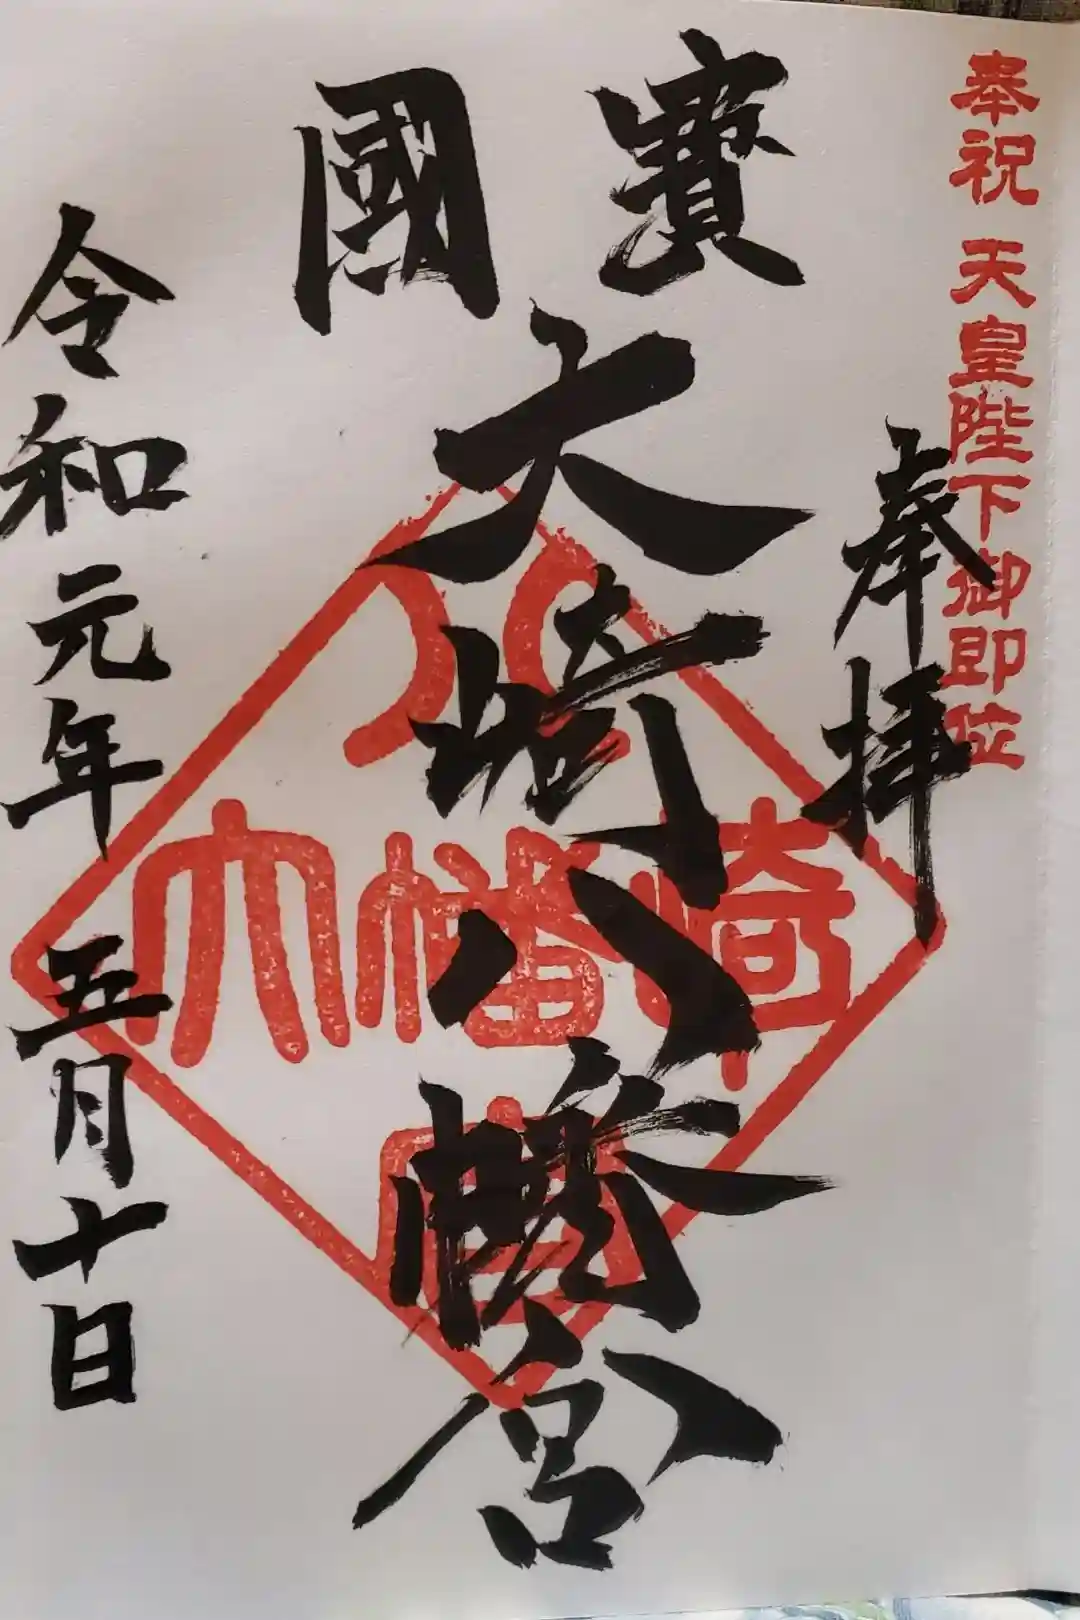 奉祝 天皇陛下御即位
奉拝
國寳
大崎八幡宮
八幡
大崎
宮
令和元年 五月十日